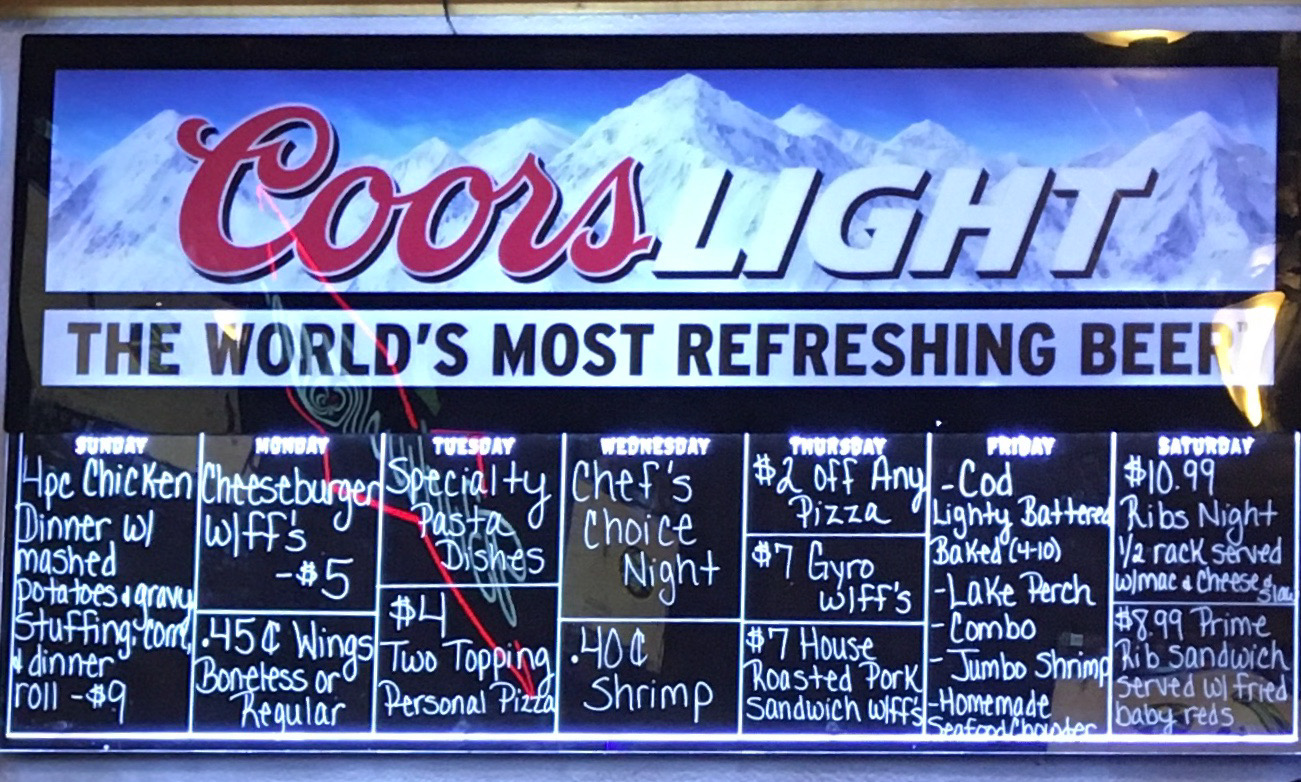 Coors LIGHT
THE WORLD'S MOST REFRESHING BEER
SUNDAY
4pc Chicken
Dinner w/
mashed
potatoes & gravy
Stuffing, corn,
& dinner
roll - $9
MONDAY
Cheeseburger
w/ff's
- $5
.45¢ Wings
Boneless or
Regular
TUESDAY
Specialty
Pasta
Dishes
$4
Two Topping
Personal Pizza
WEDNESDAY
Chef's
Choice
Night
.40¢
Shrimp
THURSDAY
$2 off Any
Pizza
$7 Gyro
w/ff's
$7 House
Roasted Pork
Sandwich w/ff's
FRIDAY
- Cod
Lighty Battered
Baked (4-10)
- Lake Perch
- Combo
- Jumbo Shrimp
- Homemade
Seafood Chowder
SATURDAY
$10.99
Ribs Night
1/2 rack served
w/mac & cheese & slaw
$8.99 Prime
Rib Sandwich
served w/ fried
baby reds